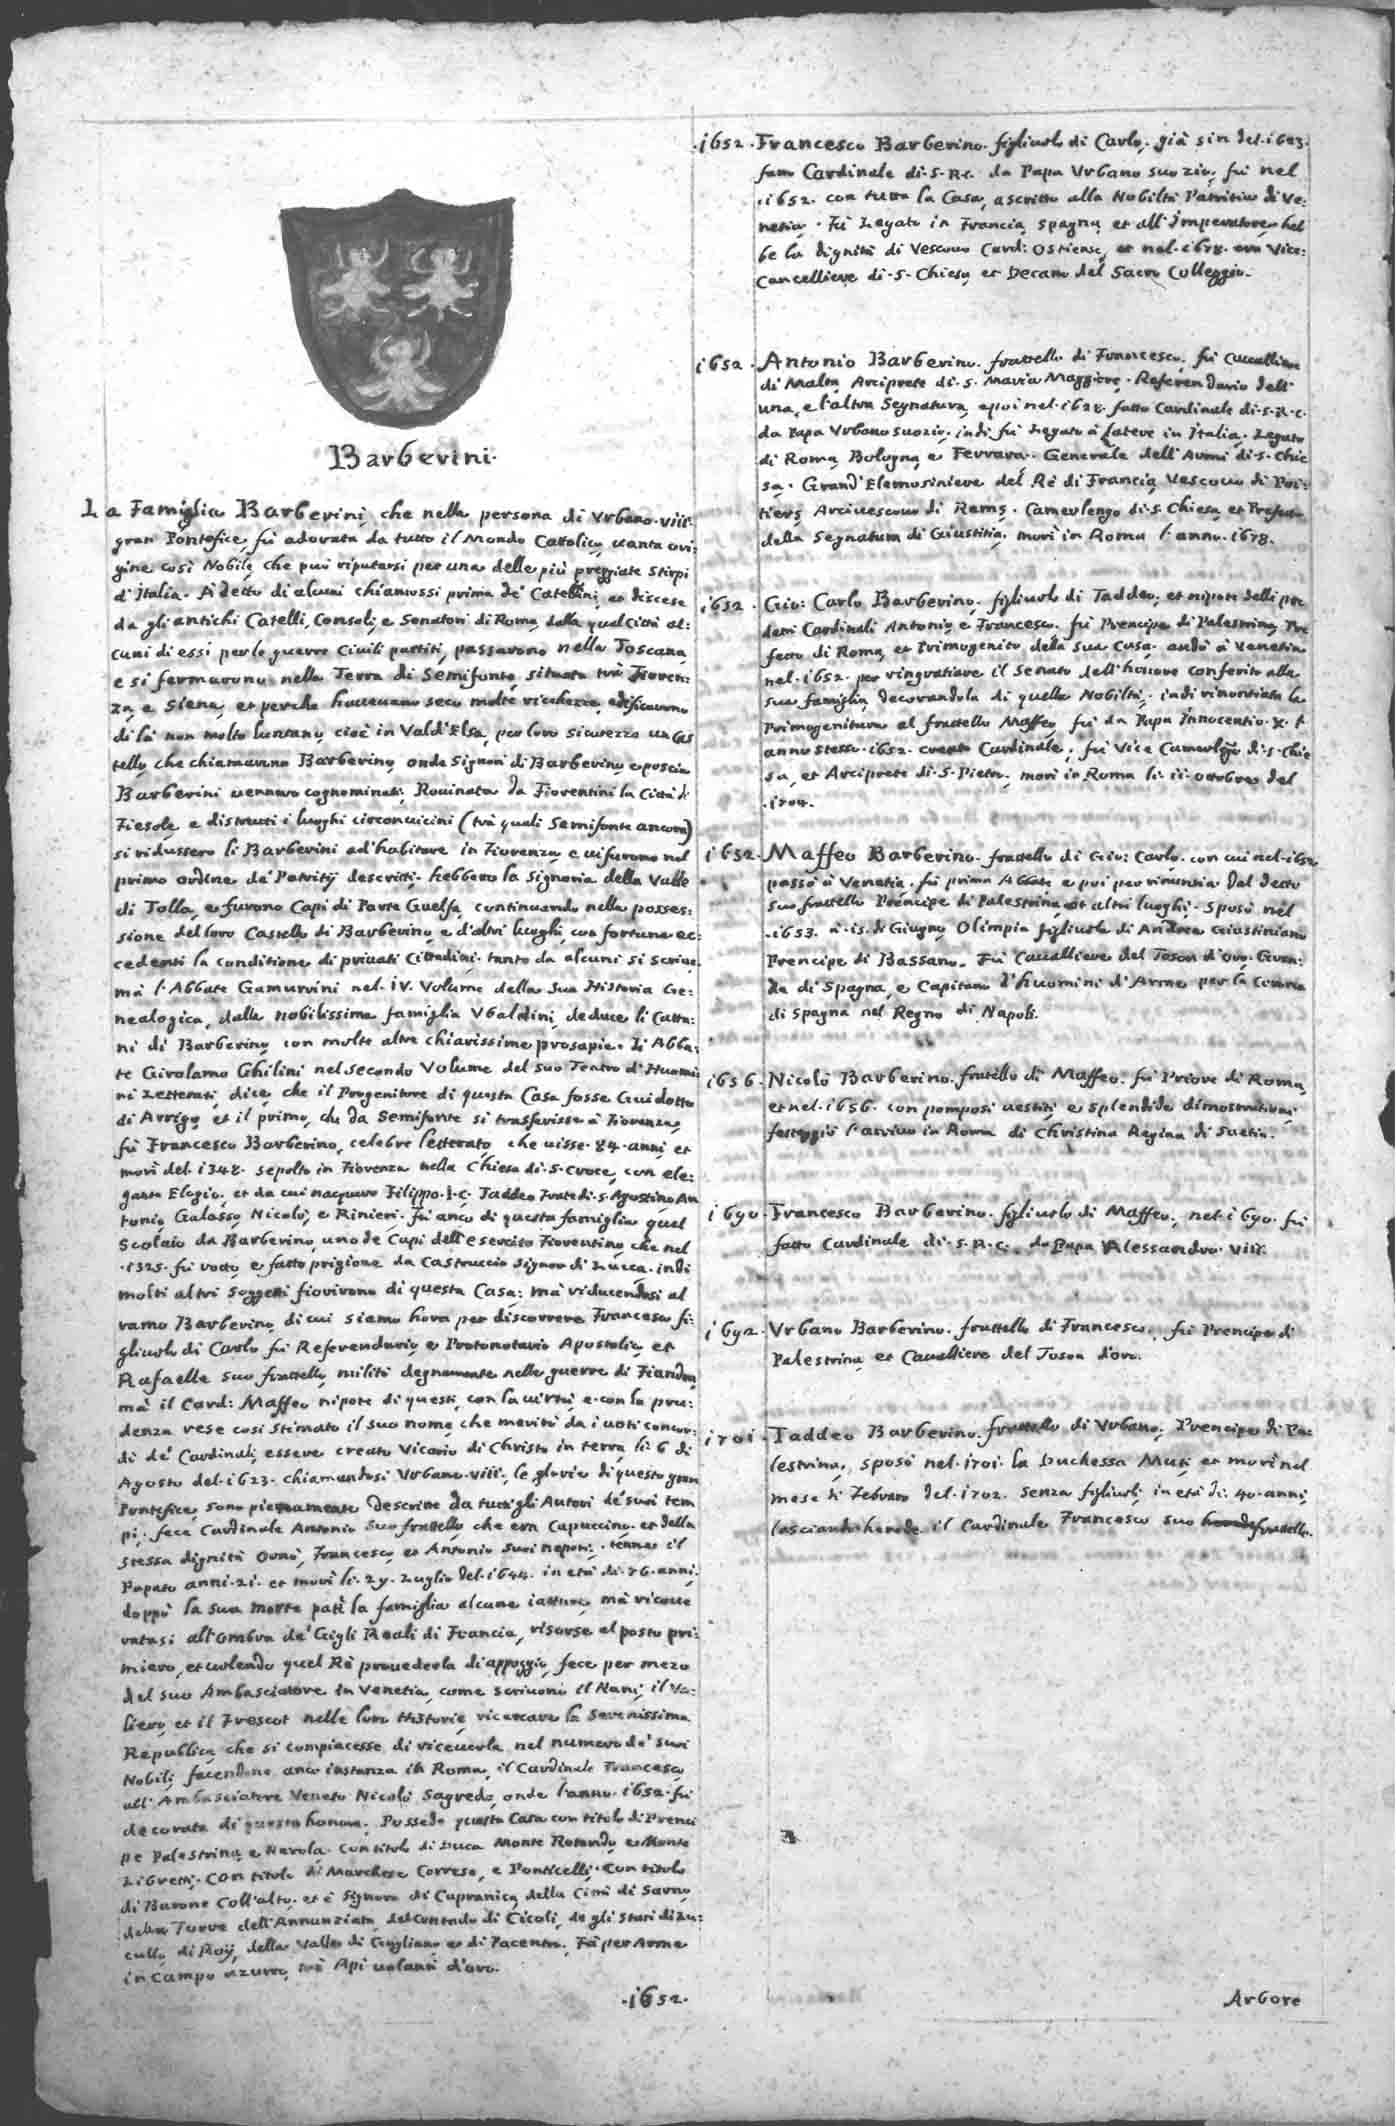 Barberini.
La Famiglia Barberini, che nella persona di Vrbano .viii.
gran Pontefice, fù adorata da tutto il Mondo Cattolico, uanta ori:
gine così Nobile, che può riputarsi per una delle più preggiate Stirpi
d'Italia. A detto di alcuni chiamossi prima de' Catellini, et discese
da gli antichi Catelli, Consoli, e Senatori di Roma, dalla qual Città al:
cuni di essi per le guerre Ciuili partiti, passarono nella Toscana,
e si fermarono nella Terra di Semifonte, situata trà Fioren:
za, e Siena, et perche haueuano seco molte ricchezze, edificarono
di là non molto luntano, cioè in Vald'Elsa, per loro sicurezza un Cas
tello, che chiamarono Barberino, onde Signori di Barberino, e poscia
Barberini uennero cognominati. Rouinata da Fiorentini la Città di
Fiesole, e distrutti i luoghi circonuicini (trà quali Semifonte ancora)
si ridussero li Barberini ad'habitare in Fiorenza, e ui furono nel
primo ordine de' Patritij descritti. hebbero la Signoria della Valle
di Tolla, e furono Capi di Parte Guelfa, continuando nella posses:
sione del loro Castello di Barberino, e d'altri luoghi, con fortune ec:
cedenti la conditione di priuati Cittadini. tanto da alcuni si scriue,
mà l'Abbate Gamurrini nel .IV. Volume della Sua Historia Ge:
nealogica, dalla nobilissima famiglia Vbaldini, deduce li Catta:
ni di Barberino, con molte altre chiarissime prosapie. L'Abba:
te Girolamo Ghilini nel secondo Volume del suo Teatro d'Huomi
ni Letterati, dice, che il Progenitore di questa Casa fosse Guidotto
di Arrigo, et il primo, che da Semifonte si trasferisse à Fiorenza,
fù Francesco Barberino, celebre letterato, che uisse .84. anni, et
morì del .1348. sepolto in Fiorenza nella Chiesa di .S. Croce, con ele:
gante Elogio. et da cui nacquero Filippo .I.C. Taddeo Frate di .S. Agostino, An
tonio, Galasso, Nicolò, e Rinieri. Fù anco di questa famiglia quel
Scolaio da Barberino, uno de Capi dell'esercito Fiorentino, che nel
.1325. fù rotto, e fatto prigione da Castruccio Signor di Lucca. indi
molti altri Soggetti fiorirono di questa Casa: mà riducendosi al
ramo Barberino, di cui siamo hora per discorrere Francesco fi:
gliuolo di Carlo fù Referendario, e Protonotario Apostolico, et
Rafaelle suo fratello, militò degnamente nelle guerre di Fiandra,
mà il Card: Maffeo nipote di questi, con la uirtù, e con la pru:
denza rese così stimato il suo nome, che meritò da i uoti concor:
di de' Cardinali, essere creato Vicario di Christo in terra, li .6. di
Agosto del .1623. chiamandosi Vrbano .viii. le glorie di questo gran
Pontefice, sono pienamente descritte da tutti gli Autori de' suoi tem
pi. fece Cardinale Antonio Suo fratello, che era Capuccino. et della
stessa dignità ornò, Francesco, et Antonio suoi nepoti. tenne il
Papato anni .21. et morì li .29. Luglio del .1644. in età di .76. anni.
doppò la sua morte patì la famiglia alcune iatture, mà ricoue
ratasi all'ombra de' Gigli Reali di Francia, risorse al posto pri:
miero, et uolendo quel Rè prouederla di appoggio, fece per mezo
del suo Ambasciatore in Venetia, come scriuono il Nani, il Va:
liero, et il Frescot nelle loro Historie, ricercare la Serenissima
Republica, che si compiacesse di riceuerla nel numero de' suoi
Nobili, facendone anco instanza in Roma, il Cardinale Francesco
all'Ambasciatore Veneto Nicolò Sagredo, onde l'anno .1652. fù
decorata di questo honore. Possede questa Casa con titolo di Prenci
pe Palestrina, e Nerola. Con titolo di Duca Monte Rotondo, e Monte
Libretti. Con titolo di Marchese Correse, e Ponticelli. Con titolo
di Barone Coll'alto. et è Signora di Capranica, della Città di Sarno,
della Torre dell'Annunziata, del Contado di Cicoli, de gli Stati di Lu:
cullo, di Roij, della Valle di Gugliano, et di Pacentro. Fà per Arme
in Campo azurro, trè Api uolanti d'oro.
.1652.
.1652. Francesco Barberino. figliuolo di Carlo, già sin del .1623.
fatto Cardinale di .S.R.C. da Papa Vrbano suo zio, fù nel
.1652. con tutta la Casa, ascritto alla Nobiltà Patritia di Ve:
netia. Fù Legato in Francia, Spagna, et all'Imperatore, heb
be la dignità di Vescouo Card: Ostiense, et nel .1678. era Vice:
Cancelliere di .S. Chiesa, et Decano del Sacro Colleggio.
1652. Antonio Barberino. fratello di Francesco. fù Cauallier
di Malta, Arciprete di .S. Maria Maggiore. Referendario dell'
una, e l'altra Segnatura, e poi nel .1628. fatto Cardinale di .S.R.C.
da Papa Vrbano suo zio. indi fù Legato à Latere in Italia. Legato
di Roma, Bologna, e Ferrara. Generale dell'Armi di .S. Chie
sa. Grand'Elemosiniere del Rè di Francia, Vescouo di Poi:
tiers, Arciuescouo di Rems. Camerlengo di .S. Chiesa, et Prefetto
della Segnatura di Giustitia. morì in Roma l'anno .1678.
1652. Gio: Carlo Barberino. figliuolo di Taddeo, et nipote delli pre
detti Cardinali Antonio, e Francesco. fù Prencipe di Palestrina, Pre
fetto di Roma, et Primogenito della sua Casa. andò à Venetia
nel .1652. per ringratiare il Senato dell'honore conferito alla
sua famiglia, decorandola di quella Nobiltà. indi rinontiata la
Primogenitura al fratello Maffeo, fù da Papa Innocentio .X. l'
anno stesso .1652. creato Cardinale. fù Vice Camerlengo di .S. Chie
sa, et Arciprete di .S. Pietro. morì in Roma li .ii. ottobre del
.1704.
1652. Maffeo Barberino. fratello di Gio: Carlo. con cui nel .1652
passò à Venetia. fù prima Abbate, e poi per rinuntia del detto
suo fratello Prencipe di Palestrina, et altri luoghi. Sposò nel
.1653. à .15. di Giugno, Olimpia figliuola di Andrea Giustiniano
Prencipe di Bassano. Fù Caualliere del Toson d'oro. Gran:
de di Spagna, e Capitano d'huomini d'Arme per la Corona
di Spagna nel Regno di Napoli.
1656. Nicolò Barberino. fratello di Maffeo. fù Priore di Roma,
et nel .1656. con pomposi uestiti, e splendide dimostrationi
festeggiò l'arriuo in Roma di Christina Regina di Suetia.
1690. Francesco Barberino. figliuolo di Maffeo. nel .1690. fù
fatto Cardinale di .S.R.C. da Papa Alessandro .viii.
1692. Vrbano Barberino. fratello di Francesco. fù Prencipe di
Palestrina, et Caualliere del Toson d'oro.
1701. Taddeo Barberino. fratello di Vrbano. Prencipe di Pa:
lestrina, sposò nel .1701. la Duchessa Muti, et morì nel
mese di Febraro del .1702. senza figliuoli, in età di .40. anni,
lasciando herede il Cardinale Francesco suo fratello.
Arbore